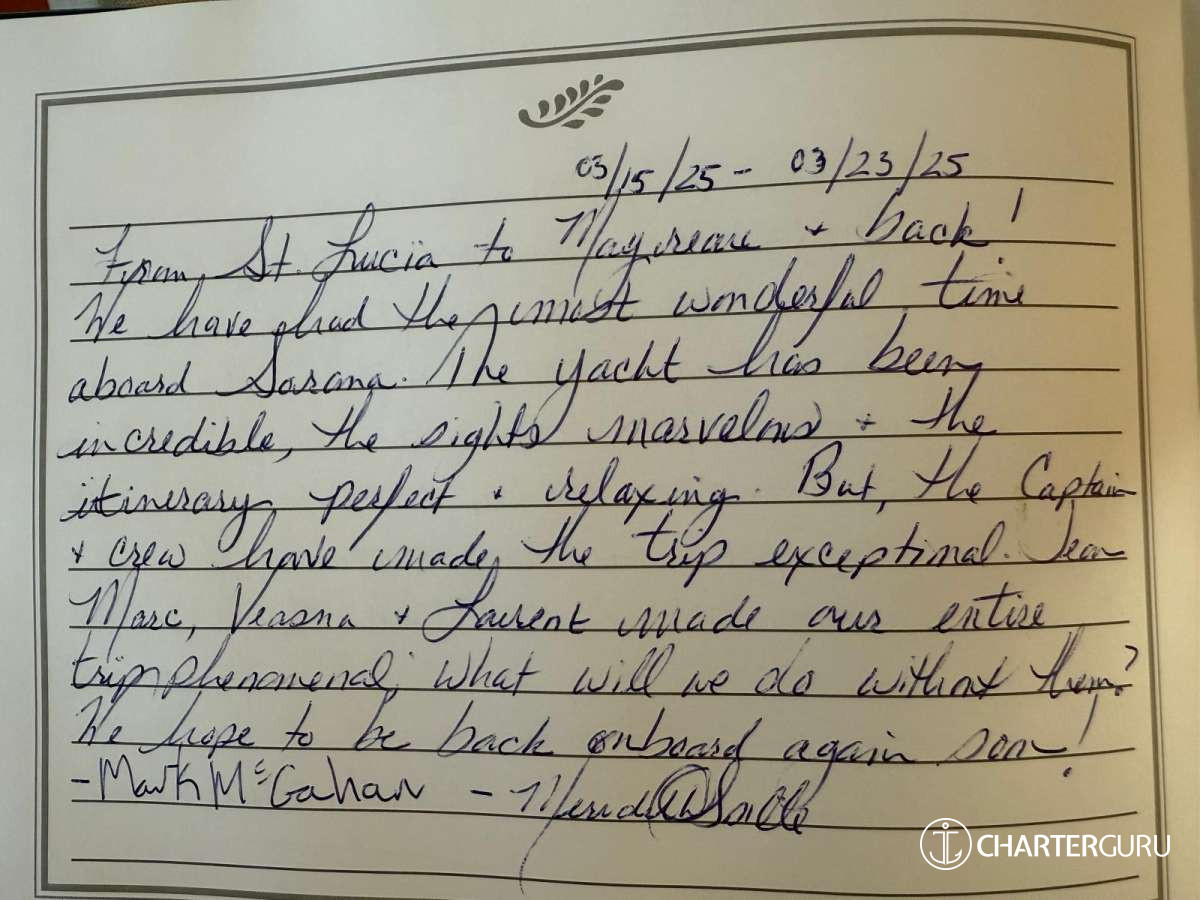 03/15/25 - 03/23/25
From St. Lucia to Mayreau + back!
We have had the most wonderful time
aboard Sarana. The yacht has been
incredible, the sights marvelous + the
itinerary perfect + relaxing. But, the Captain
+ crew have made the trip exceptional. Jean
Marc, Veasna + Laurent made our entire
trip phenomenal; what will we do without them?
We hope to be back onboard again soon!
- Mark McGahan -
CHARTERGURU